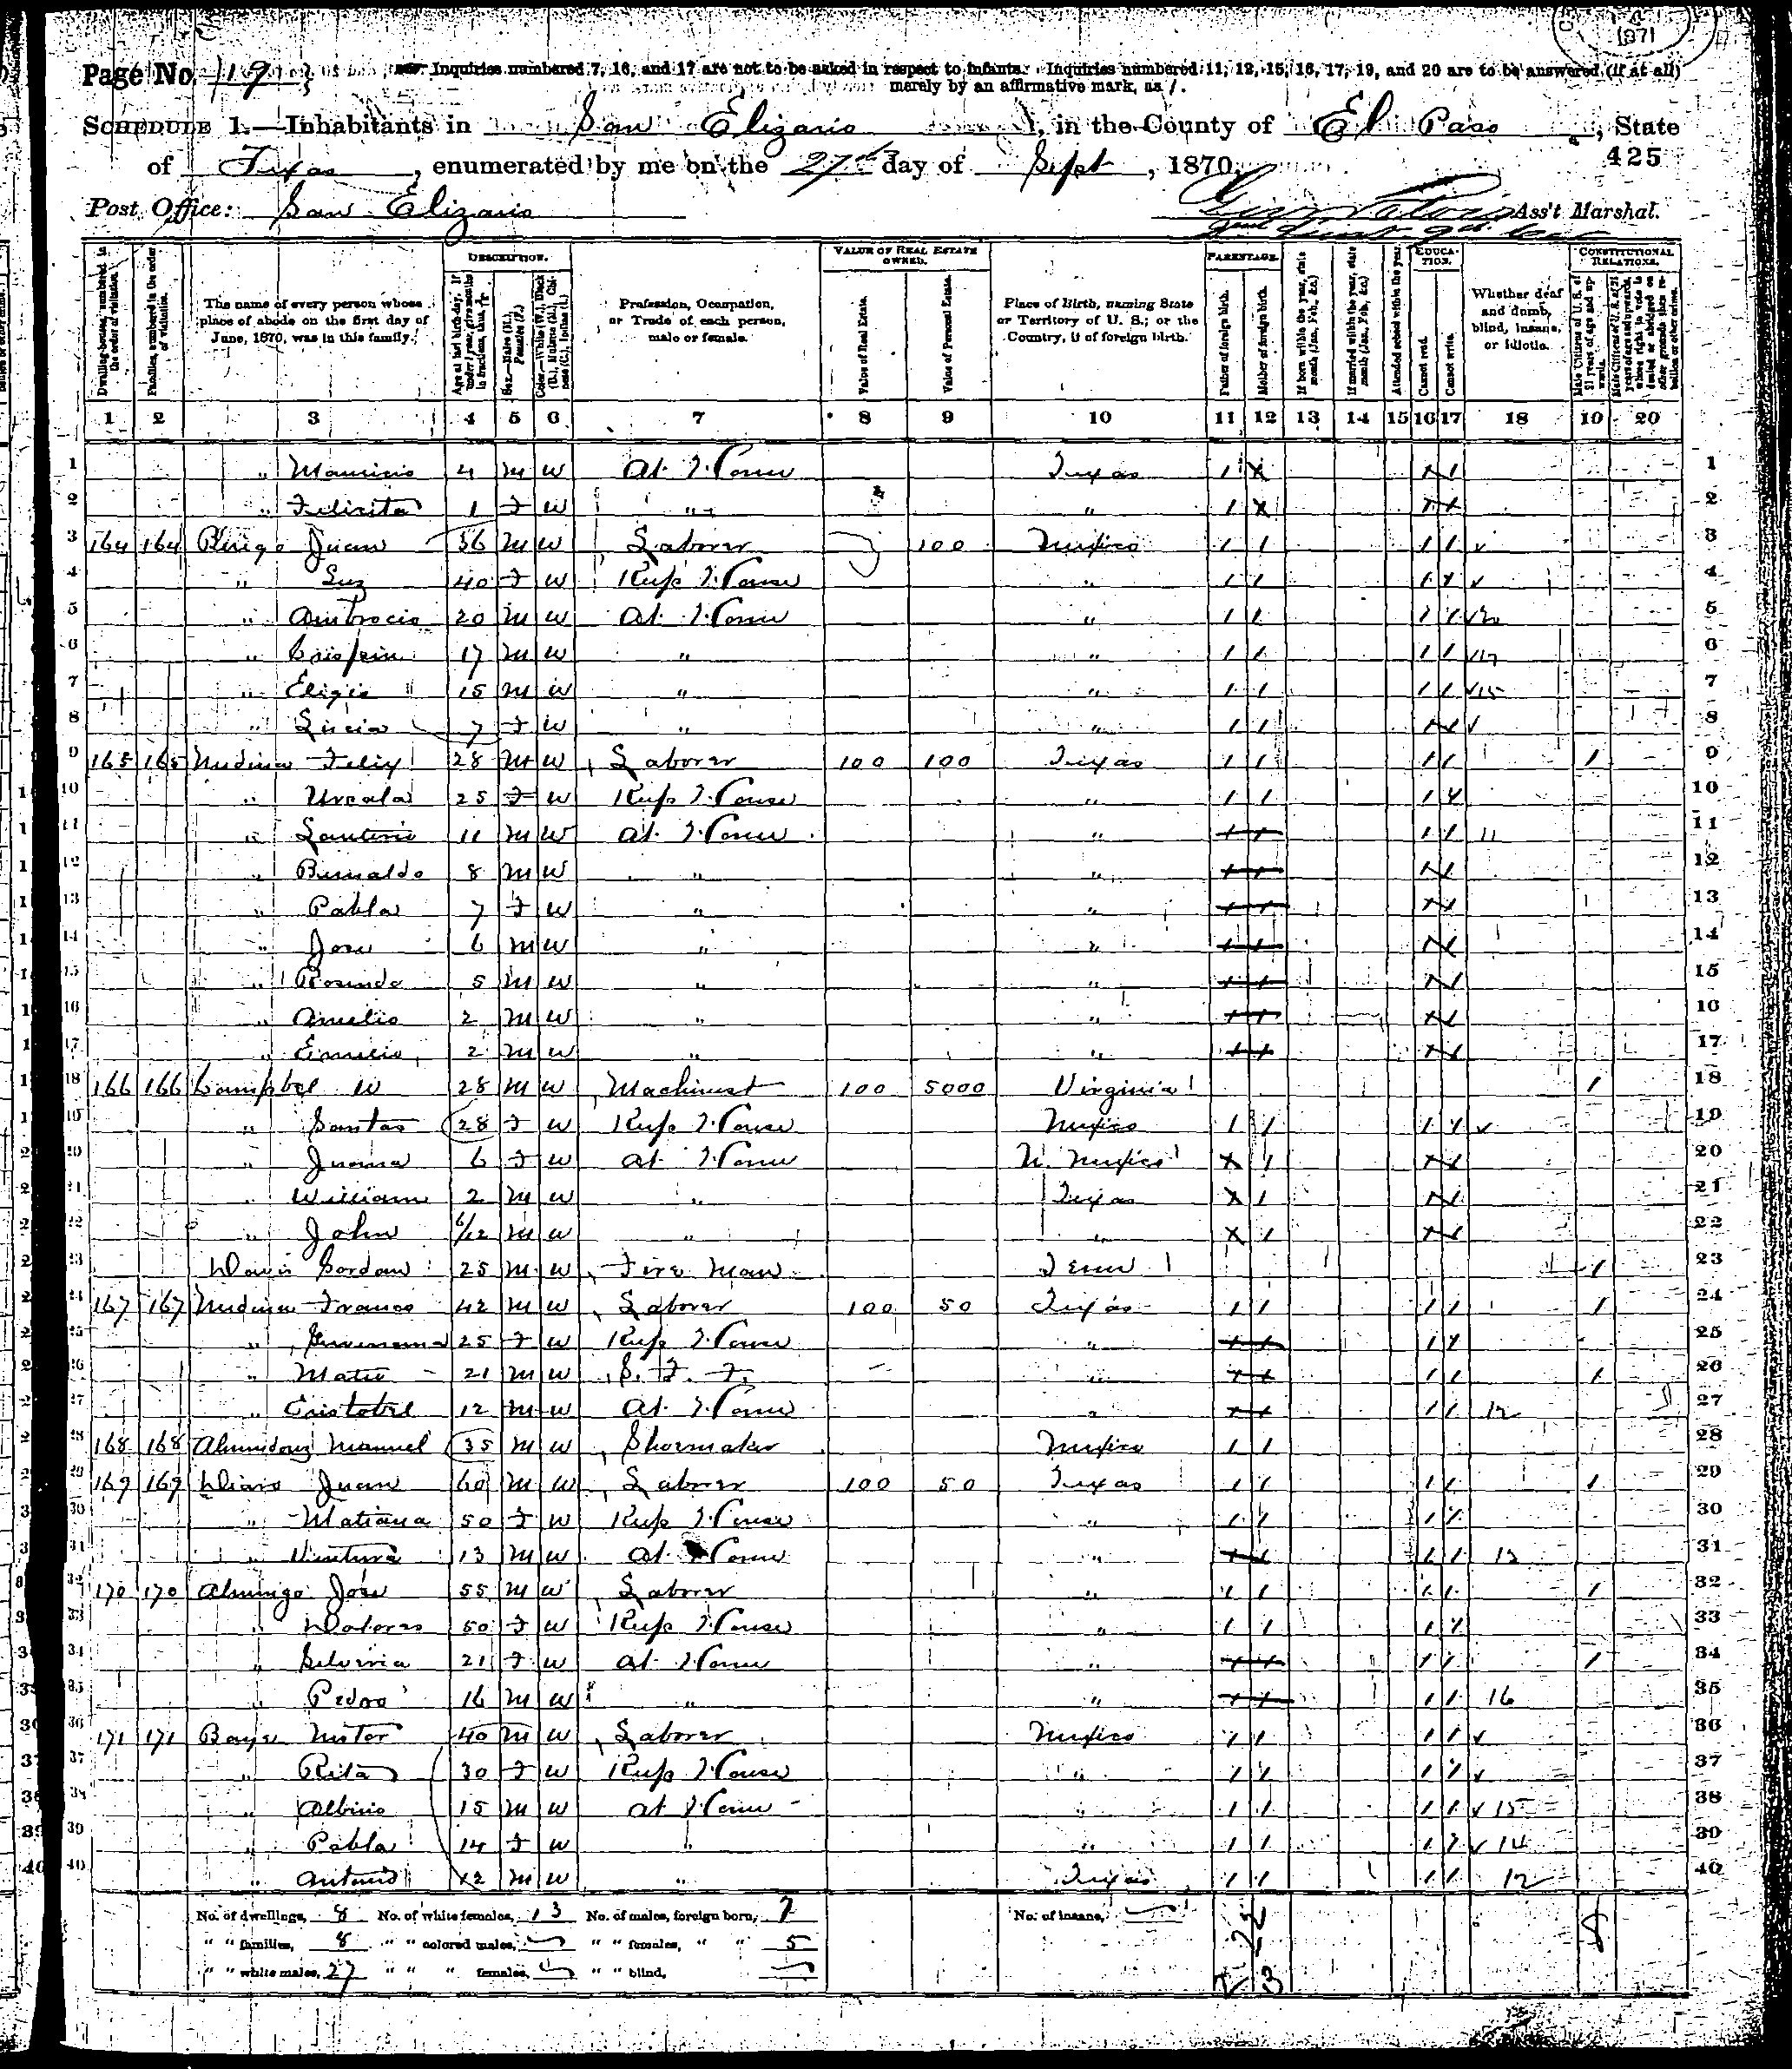 1871
Page No. 19
Inquiries numbered 7, 16, and 17 are not to be asked in respect to infants. Inquiries numbered 11, 12, 15, 16, 17, 19, and 20 are to be answered (if at all)
merely by an affirmative mark, as /.
SCHEDULE 1.—Inhabitants in San Elizario, in the County of El Paso, State
of Texas, enumerated by me on the 27th day of Sept, 1870.
425
Post Office: San Elizario
Ass't Marshal.
DESCRIPTION.
VALUE OF REAL ESTATE OWNED.
PARENTAGE.
EDUCATION.
CONSTITUTIONAL RELATIONS.
Dwelling-houses, numbered in the order of visitation.
Families, numbered in the order of visitation.
The name of every person whose place of abode on the first day of June, 1870, was in this family.
Age at last birth-day. If under 1 year, give months in fractions, thus,
Sex.—Males (M.), Females (F.)
Color.—White (W.), Black (B.), Mulatto (M.), Chinese (C.), Indian (I.)
Profession, Occupation, or Trade of each person, male or female.
Value of Real Estate.
Value of Personal Estate.
Place of Birth, naming State or Territory of U. S.; or the Country, if of foreign birth.
Father of foreign birth.
Mother of foreign birth.
If born within the year, state month (Jan., Feb., &c.)
If married within the year, state month (Jan., Feb., &c.)
Attended school within the year.
Cannot read.
Cannot write.
Whether deaf and dumb, blind, insane, or idiotic.
Male Citizens of U. S. of 21 years of age and upwards.
Male Citizens of U. S. of 21 years of age and upwards, whose right to vote is denied or abridged on other grounds than rebellion or other crime.
1 2 3 4 5 6 7 8 9 10 11 12 13 14 15 16 17 18 19 20
1 " Mauricio 4 M W At Home Texas / X / / 1
2 " Felicita 1 F W " " / X / / 2
3 164 164 Juan 36 M W Laborer 100 Mexico / / / / 3
4 " Luz 40 F W Keeps House " / / / / 4
5 " Ambrocio 20 M W At Home " / / / / 20 5
6 " Crispin 17 M W " " / / / / 17 6
7 " Eligio 15 M W " " / / / / 15 7
8 " Lucia 7 F W " " / / / / 8
9 165 165 Medina Felix 28 M W Laborer 100 100 Texas / / / / / 9
10 " Ursula 25 F W Keeps House " / / / / 10
11 " 11 M W At Home " / / 11 11
12 " Bernaldo 8 M W " " / / 12
13 " Pabla 7 F W " " / / 13
14 " Jose 6 M W " " / / 14
15 " Rosendo 5 M W " " / / 15
16 " Amelio 2 M W " " / / 16
17 " 2 M W " " / / 17
18 166 166 Campbel W 28 M W Machinist 100 5000 Virginia / 18
19 " Santos 28 F W Keeps House Mexico / / / / 19
20 " Juana 6 F W At Home N. Mexico X / / / 20
21 " William 2 M W " Texas X / / / 21
22 " John 6/12 M W " " X / / / 22
23 Davis Gordan 25 M W Fire Man Tenn / 23
24 167 167 Medina Franco 42 M W Laborer 100 50 Texas / / / / / 24
25 " 25 F W Keeps House " / / 25
26 " Mateo 21 M W " / / / 26
27 " Cristobal 12 M W At Home " / / 12 27
28 168 168 Manuel 35 M W Shoemaker Mexico / / 28
29 169 169 Juan 60 M W Laborer 100 50 Texas / / / / / 29
30 " Matiana 50 F W Keeps House " / / / / 30
31 " Ventura 13 M W At Home " / / 13 31
32 170 170 Jose 55 M W Laborer " / / / / / 32
33 " Dolores 50 F W Keeps House " / / / / 33
34 " 21 F W At Home " / / / 34
35 " Pedro 16 M W " " / / 16 35
36 171 171 Nestor 40 M W Laborer Mexico / / / / 36
37 " Rita 30 F W Keeps House " / / / / 37
38 " Albino 15 M W At Home " / / / / 15 38
39 " Pabla 14 F W " " / / / / 14 39
40 " Antonio 12 M W " Texas / / / / 12 40
No. of dwellings, 8 No. of white females, 13 No. of males, foreign born, 7 No. of insane,
" " families, 8 " " colored males, " " females, " " 5
" " white males, 27 " " " females, " " blind,